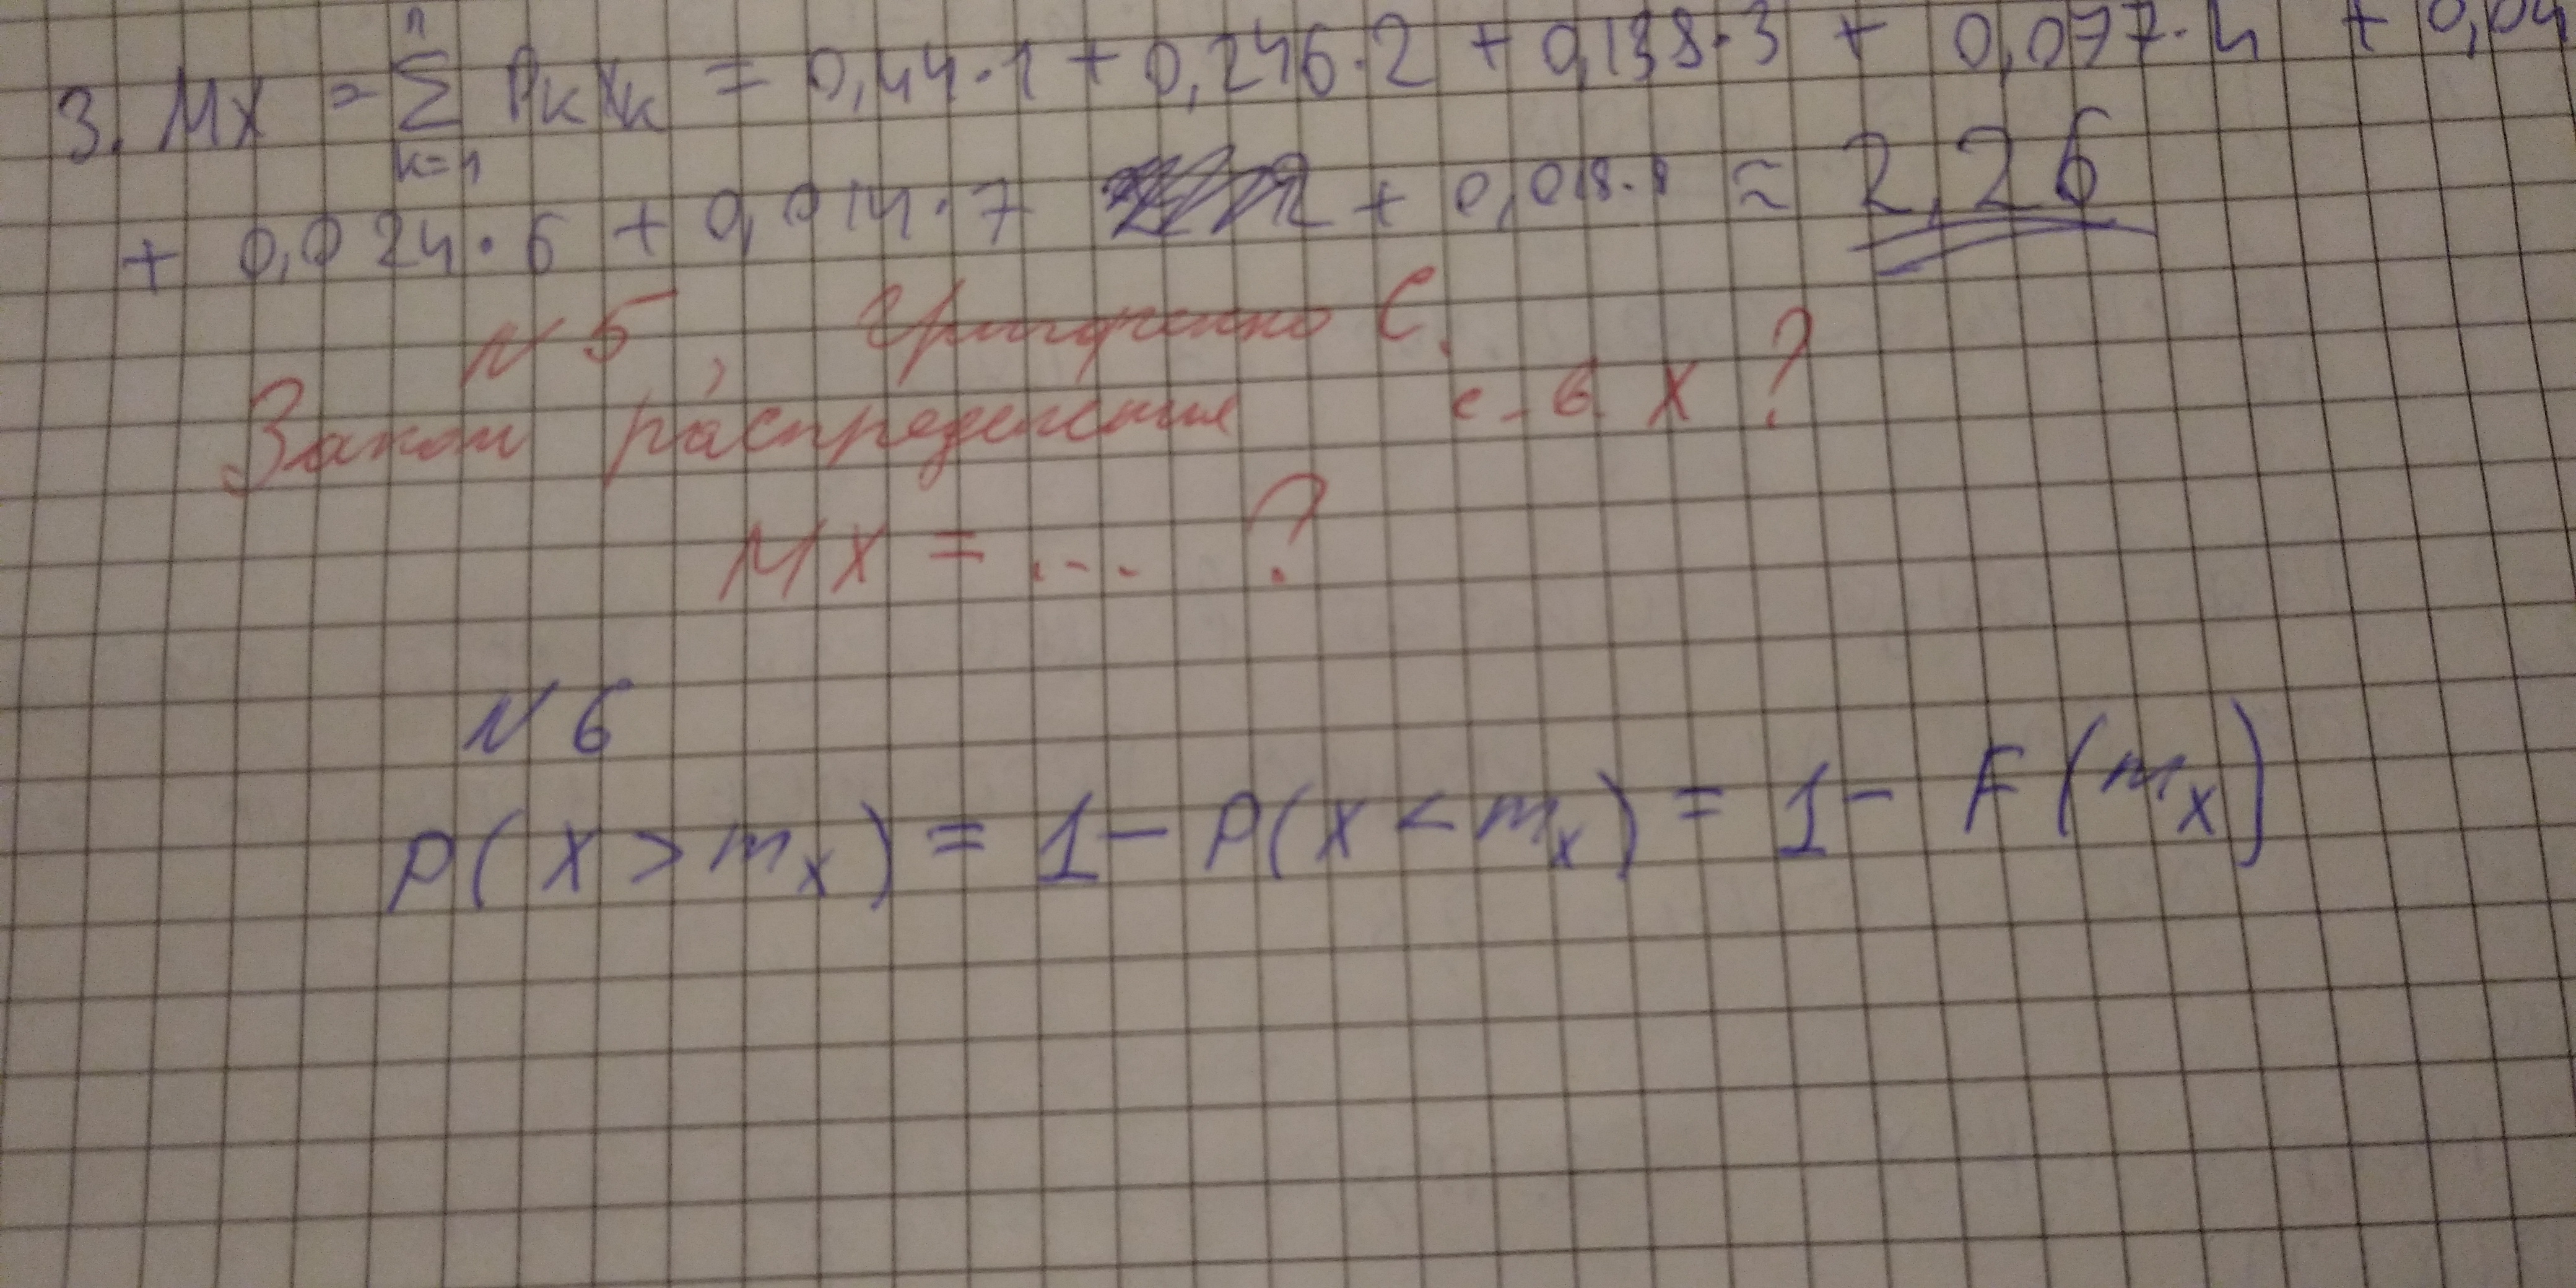 n
3. MX = ∑ PₖXₖ = 0,44·1 + 0,246·2 + 0,138·3 + 0,077·4 + 0,04
k=1
+ 0,024·6 + 0,014·7 + 0,018·8 ≈ 2,26
N 5, С.
Закон распределения с.в. X ?
MX = ... ?
N 6
P(X > mₓ) = 1 - P(X < mₓ) = 1 - F(mₓ)